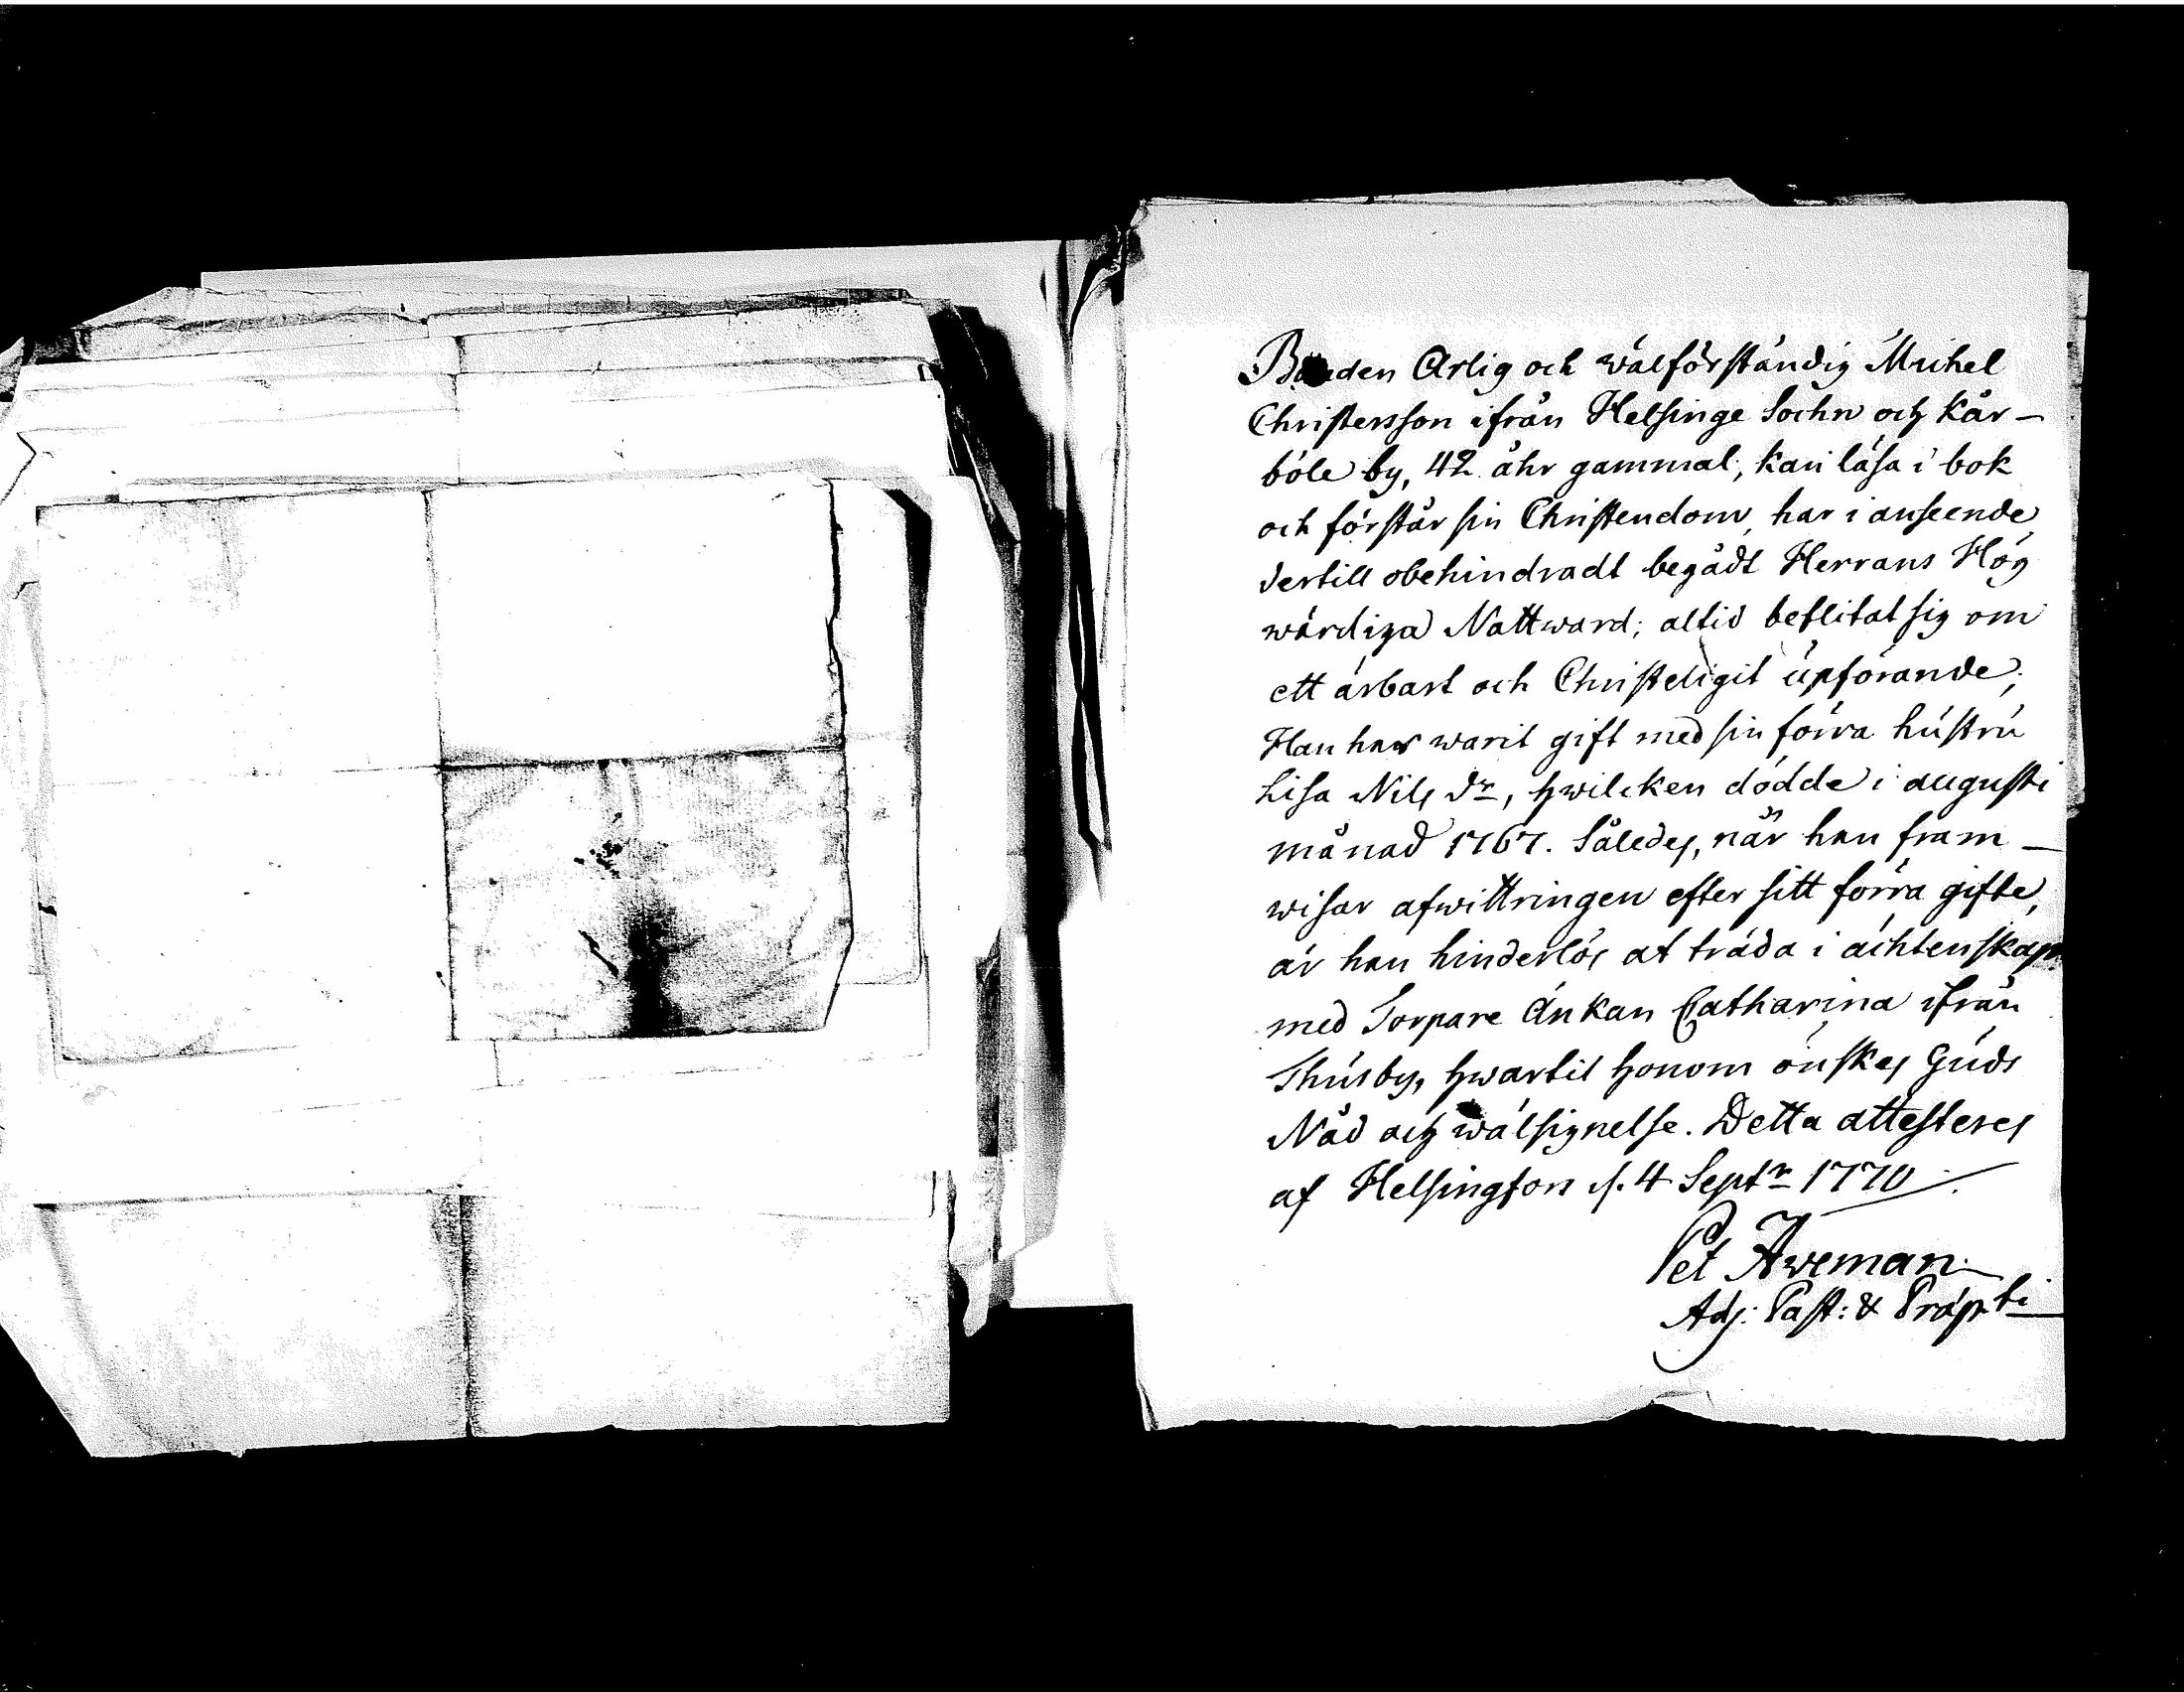 Bonden Ärlig och wälförståndig Michel
Christersson ifrån Helsinge Sochn och Kår-
böle by, 42 åhr gammal, kan läsa i bok
och förstår sin Christendom, har i anseende
dertill obehindradt begådt Herrans Hög
wärdiga Nattward; altid beflitat sig om
ett ärbart och Christeligit upförande;
Han har warit gift med sin förra hustru
Lisa Nils dr, hwilcken dödde i augusti
månad 1767. Således, när han fram-
wisar afwittringen efter sitt förra gifte,
är han hinderlös at träda i ächtenskap
med Torpare Änkan Catharina ifrån
Thusby, hwartil honom önskes Guds
Nåd och wälsignelse. Detta attesteres
af Helsingfors d. 4 Septr 1770.
Pet
Adj: Past: & Præp:ti